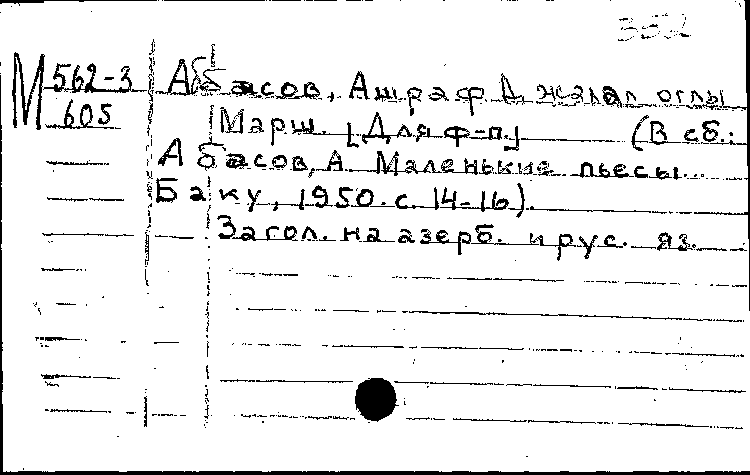 352
М 562-3
605
Аббасов, Ашраф Джалал оглы
Марш. [Для ф-п.] (В сб.:
Аббасов, А. Маленькие пьесы...
Баку, 1950. с. 14-16).
Загол. на азерб. и рус. яз.